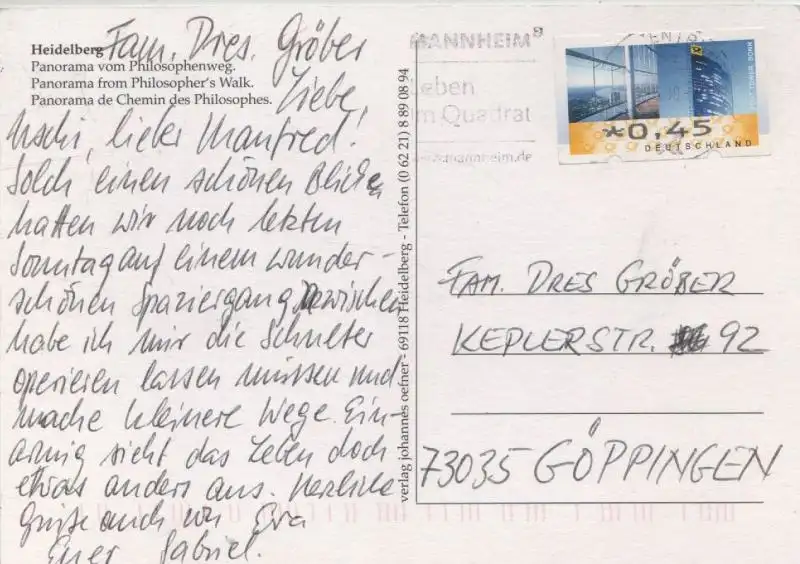 Heidelberg
Panorama vom Philosophenweg.
Panorama from Philosopher's Walk.
Panorama de Chemin des Philosophes.
Fam. Dres. Gröber
Liebe
lieber Manfred!
Solch einen schönen Blick
hatten wir noch letzten
Sonntag auf einem wunder-
schönen Spaziergang. Inzwischen
habe ich mir die Schulter
operieren lassen müssen und
mache kleinere Wege. Ein-
armig sieht das Leben doch
etwas anders aus. Herzliche
Grüße auch von Eva
Euer Gabriel.
verlag johannes oefner - 69118 Heidelberg - Telefon (0 62 21) 8 89 08 94
MANNHEIM
Leben
im Quadrat
mannheim.de
*0,45
DEUTSCHLAND
POST TOWER, BONN
FAM. DRES GRÖBER
KEPLERSTR. 92
73035 GÖPPINGEN